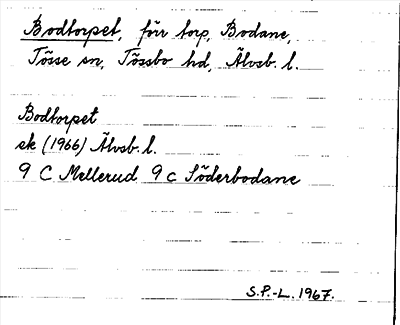 Bodtorpet, förr torp, Bodane,
Tösse sn, Tössbo hd, Älvsb. l.
Bodtorpet
ek (1966) Älvsb. l.
9 C Mellerud 9 c Söderbodane
S.P.-L. 1967.